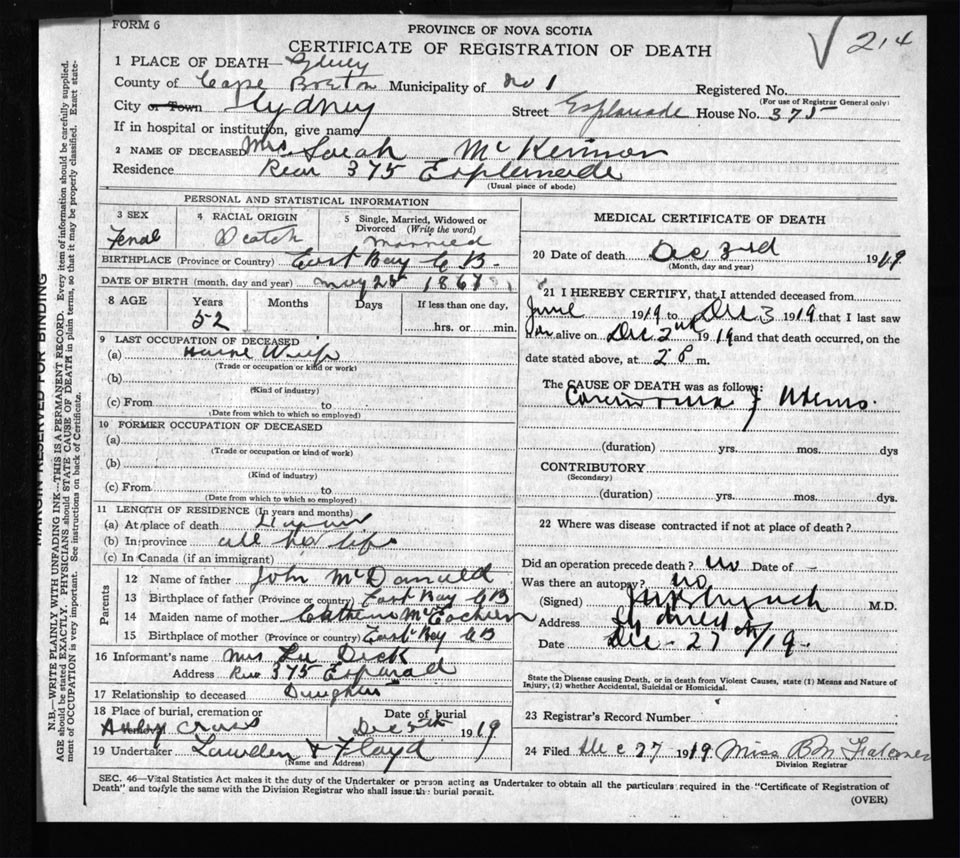 FORM 6
PROVINCE OF NOVA SCOTIA
CERTIFICATE OF REGISTRATION OF DEATH
214
1 PLACE OF DEATH— Sydney
County of Cape Breton Municipality of No 1 Registered No.
(For use of Registrar General only)
City or Town Sydney Street Esplanade House No. 375
If in hospital or institution, give name
2 NAME OF DECEASED Mrs. Sarah McKinnon
Residence Rear 375 Esplanade
(Usual place of abode)
PERSONAL AND STATISTICAL INFORMATION
3 SEX 4 RACIAL ORIGIN 5 Single, Married, Widowed or Divorced (Write the word)
Female Scotch Married
BIRTHPLACE (Province or Country) East Bay C B.
DATE OF BIRTH (month, day and year) May 25 1867
8 AGE Years Months Days If less than one day,
52 hrs. or min.
9 LAST OCCUPATION OF DECEASED
(a) House Wife
(Trade or occupation or kind or work)
(b)
(Kind of industry)
(c) From to
(Date from which to which so employed)
10 FORMER OCCUPATION OF DECEASED
(a)
(Trade or occupation or kind of work)
(b)
(Kind of industry)
(c) From to
(Date from which to which so employed)
11 LENGTH OF RESIDENCE (In years and months)
(a) At place of death
(b) In province all her life
(c) In Canada (if an immigrant)
Parents
12 Name of father John McDonald
13 Birthplace of father (Province or country) East Bay CB
14 Maiden name of mother Catherine McEachern
15 Birthplace of mother (Province or country) East Bay CB
16 Informant's name Mrs Dick
Address Rear 375 Esplanad
17 Relationship to deceased Daughter
18 Place of burial, cremation or Date of burial
Cross Dec 5th 1919
19 Undertaker Lowden & Floyd
(Name and Address)
MEDICAL CERTIFICATE OF DEATH
20 Date of death Dec 3rd 1919
(Month, day and year)
21 I HEREBY CERTIFY, that I attended deceased from
June 1919 to Dec 3 1919 that I last saw
her alive on Dec 2nd 1919 and that death occurred, on the
date stated above, at 2 P m.
The CAUSE OF DEATH was as follows:
Carcinoma of Uterus.
(duration) yrs. mos. dys
CONTRIBUTORY
(Secondary)
(duration) yrs. mos. dys.
22 Where was disease contracted if not at place of death?
Did an operation precede death? no Date of -
Was there an autopsy? no
(Signed) M.D.
Address
Date Dec - 27 /19.
State the Disease causing Death, or in death from Violent Causes, state (1) Means and Nature of
Injury, (2) whether Accidental, Suicidal or Homicidal.
23 Registrar's Record Number
24 Filed Dec 27 1919 Miss B M Falconer
Division Registrar
SEC. 46—Vital Statistics Act makes it the duty of the Undertaker or person acting as Undertaker to obtain all the particulars required in the "Certificate of Registration of
Death" and to fyle the same with the Division Registrar who shall issue the burial permit.
(OVER)
MARGIN RESERVED FOR BINDING
N.B.—WRITE PLAINLY WITH UNFADING INK—THIS IS A PERMANENT RECORD. Every item of information should be carefully supplied.
AGE should be stated EXACTLY. PHYSICIANS should STATE CAUSE OF DEATH in plain terms, so that it may be properly classified. Exact state-
ment of OCCUPATION is very important. See instructions on back of Certificate.